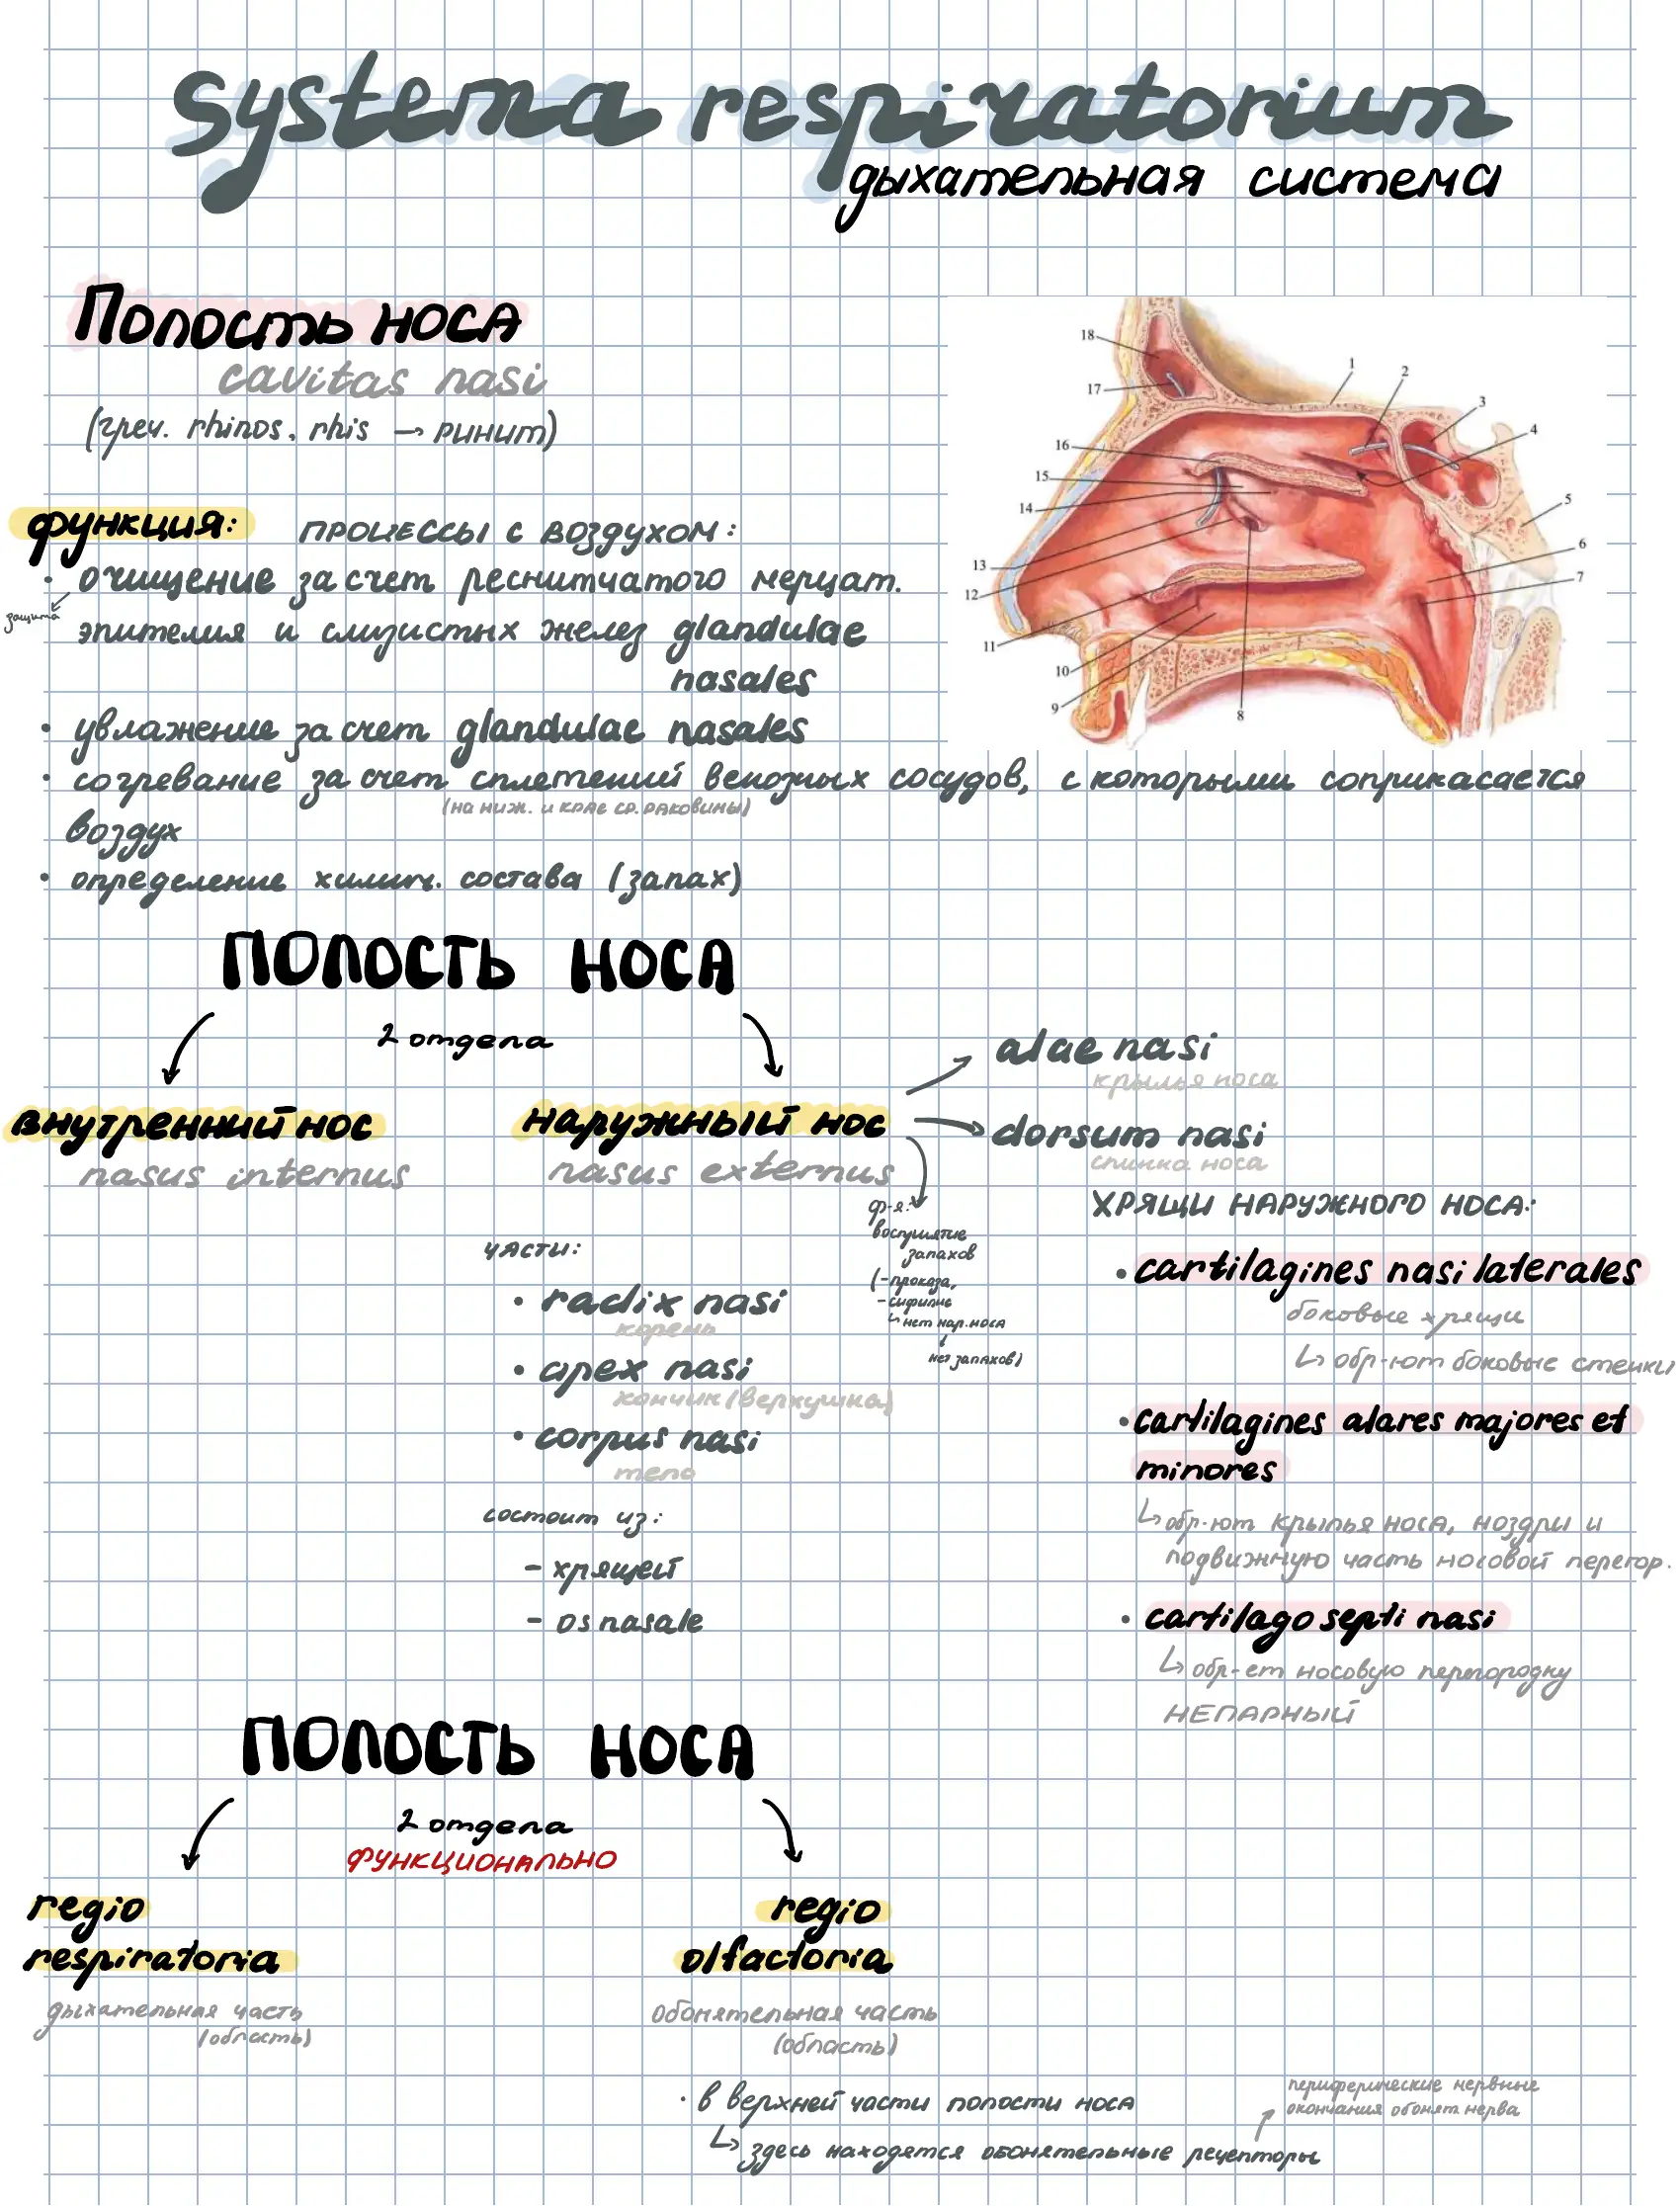 systema respiratorium
дыхательная система
Полость носа
cavitas nasi
(греч. rhinos, rhis → ринит)
функция: процессы с воздухом:
• очищение за счет реснитчатого мерцат.
защита
эпителия и слизистых желез glandulae
nasales
• увлажение за счет glandulae nasales
• согревание за счет сплетений венозных сосудов, с которыми соприкасается
(на ниж. и крае ср. раковины)
воздух
• определение химич. состава (запах)
18
17
16
15
14
13
12
11
10
9
8
1
2
3
4
5
6
7
ПОЛОСТЬ НОСА
2 отдела
внутренний нос
nasus internus
наружный нос
nasus externus
alae nasi
крылья носа
dorsum nasi
спинка носа
ф-я:
восприятие
запахов
(-проказа,
-сифилис
↳ нет нар. носа
↓
нет запахов)
части:
• radix nasi
корень
• apex nasi
кончик (верхушка)
• corpus nasi
тело
состоит из:
- хрящей
- os nasale
ХРЯЩИ НАРУЖНОГО НОСА:
• cartilagines nasi laterales
боковые хрящи
↳ обр-ют боковые стенки
• cartilagines alares majores et
minores
↳ обр-ют крылья носа, ноздри и
подвижную часть носовой перегор.
• cartilago septi nasi
↳ обр-ет носовую перегородку
НЕПАРНЫЙ
ПОЛОСТЬ НОСА
2 отдела
ФУНКЦИОНАЛЬНО
regio
respiratoria
дыхательная часть
(область)
regio
olfactoria
обонятельная часть
(область)
• в верхней части полости носа
↳ здесь находятся обонятельные рецепторы
периферические нервные
окончания обонят нерва